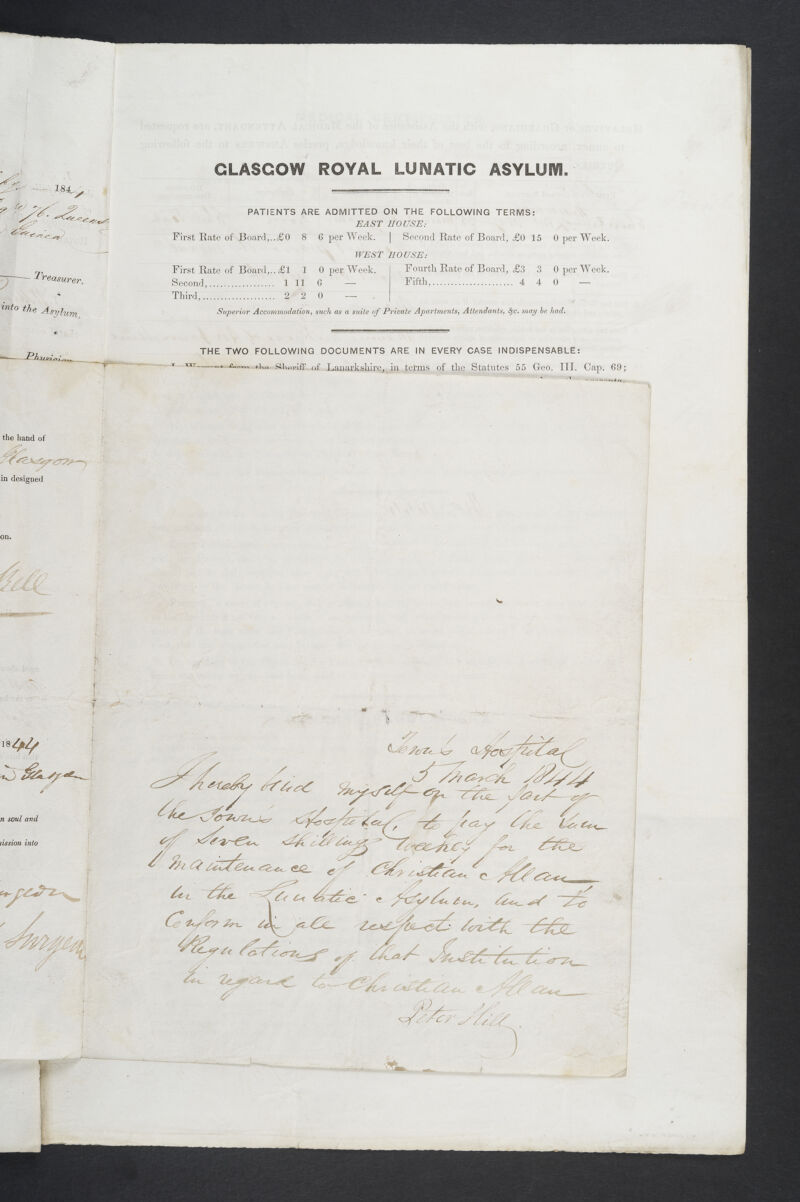 184
Treasurer.
into the Asylum,
Physician
the hand of
Glasgow
in designed
on.
Bell
1844
n soul and
mission into
Surgeon
GLASGOW ROYAL LUNATIC ASYLUM.
PATIENTS ARE ADMITTED ON THE FOLLOWING TERMS:
EAST HOUSE:
First Rate of Board,...£0 8 6 per Week. | Second Rate of Board, £0 15 0 per Week.
WEST HOUSE:
First Rate of Board,...£1 1 0 per Week. | Fourth Rate of Board, £3 3 0 per Week.
Second,................... 1 11 6 — | Fifth,........................ 4 4 0 —
Third,...................... 2 2 0 —
Superior Accommodation, such as a suite of Private Apartments, Attendants, &c. may be had.
THE TWO FOLLOWING DOCUMENTS ARE IN EVERY CASE INDISPENSABLE:
I. Warrant from the Sheriff of Lanarkshire, in terms of the Statutes 55 Geo. III. Cap. 69;
Town's Hospital
5 March 1844
I hereby bind myself on the part of
the Town's Hospital, to pay the sum
of Seven Shillings weekly for the
Maintenance of Christian Allan
in the Lunatic Asylum, and to
Conform in all respect with the
Regulations of that Institution
in regard to Christian Allan
Peter Hill